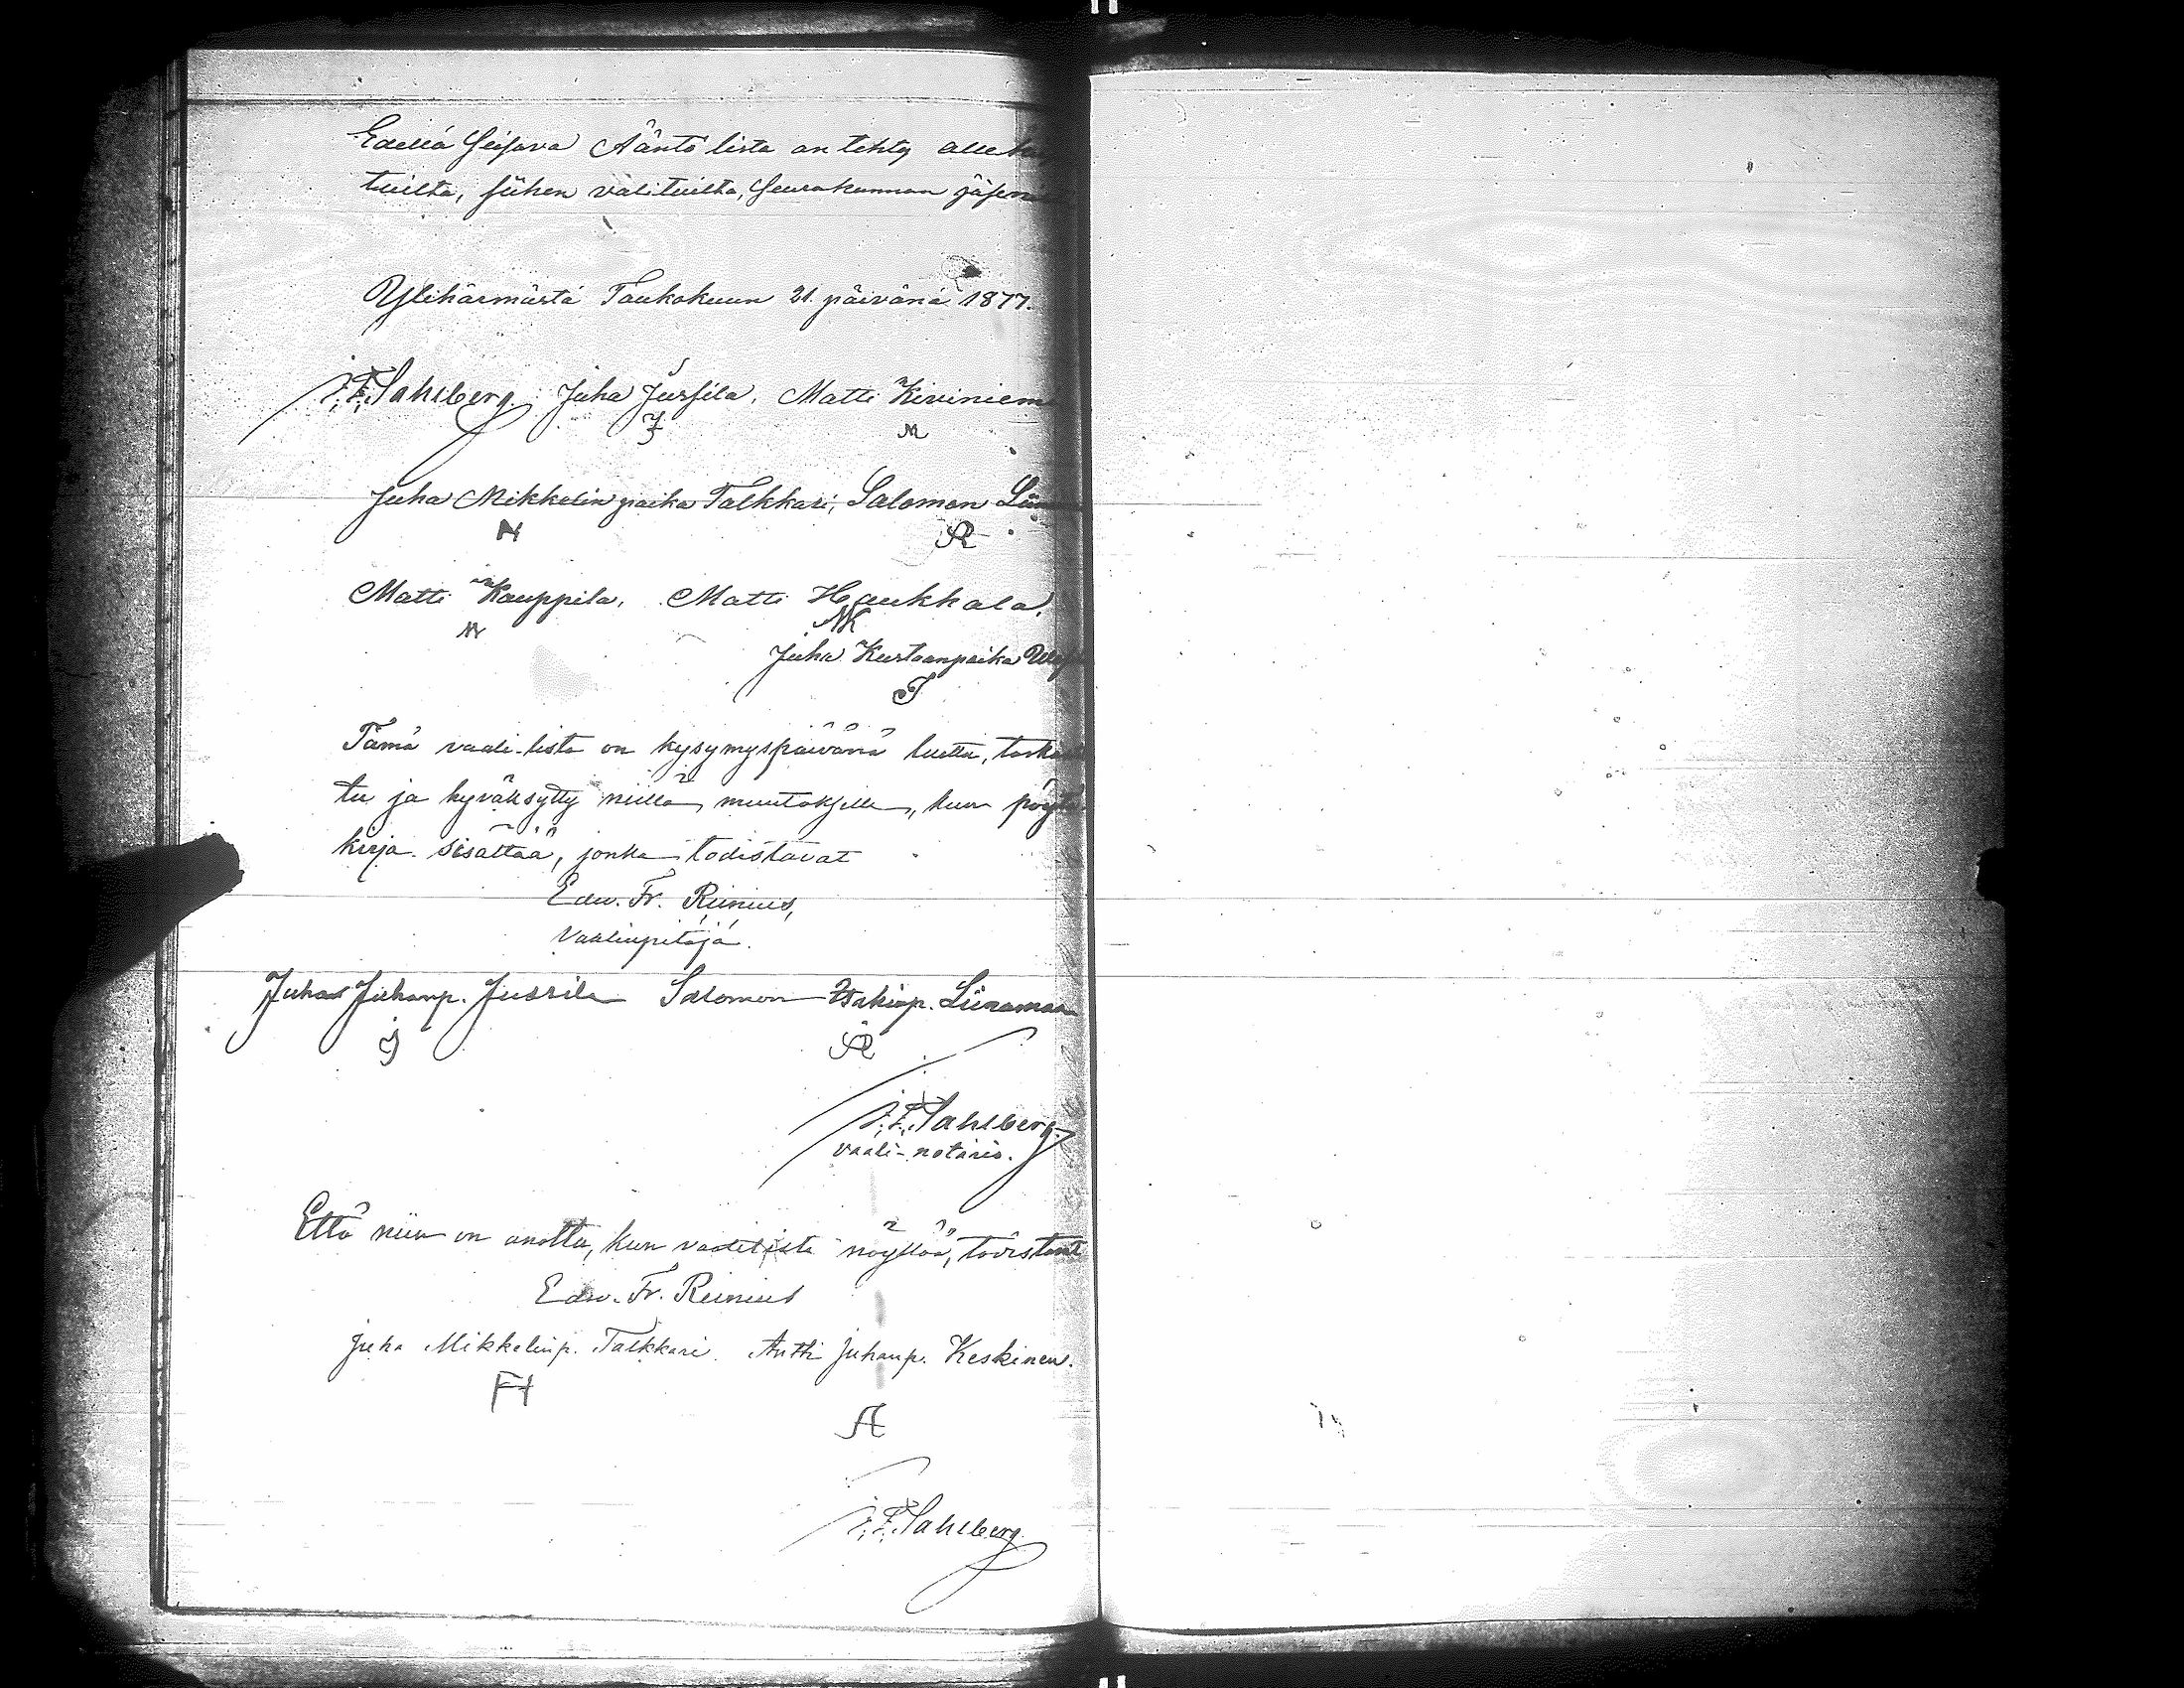 Edellä seisova Ääntö lista on tehty alle
tuilta, siihen valituilta, Seurakunnan jäseni
Ylihärmästä Toukokuun 21. päivänä 1877.
J. F. Sahlberg. Juha Jussila, Matti Kiviniem
J M
Juha Mikkelin poika Talkkari, Salomon Liin
H
Matti Kauppila, Matti Haukkala,
M MK
Juha Kustaanpoika
J
Tämä vaali-lista on kysymyspäivänä luettu, tarkas
tu ja hyväksytty niillä muutoksilla, kuin pöytä
kirja sisältää, jonka todistavat
Edw. Fr. Reinius,
Vaalinpitäjä.
Juha Juhanp. Jussila Salomon Isakinp. Liinamaa
J
J. F. Sahlberg.
vaali-notario.
Että niin on anottu, kun vaalilista näyttää, todistavat
Edw. Fr. Reinius
Juha Mikkelinp. Talkkari. Antti Juhanp. Keskinen.
H
A
J. F. Sahlberg.